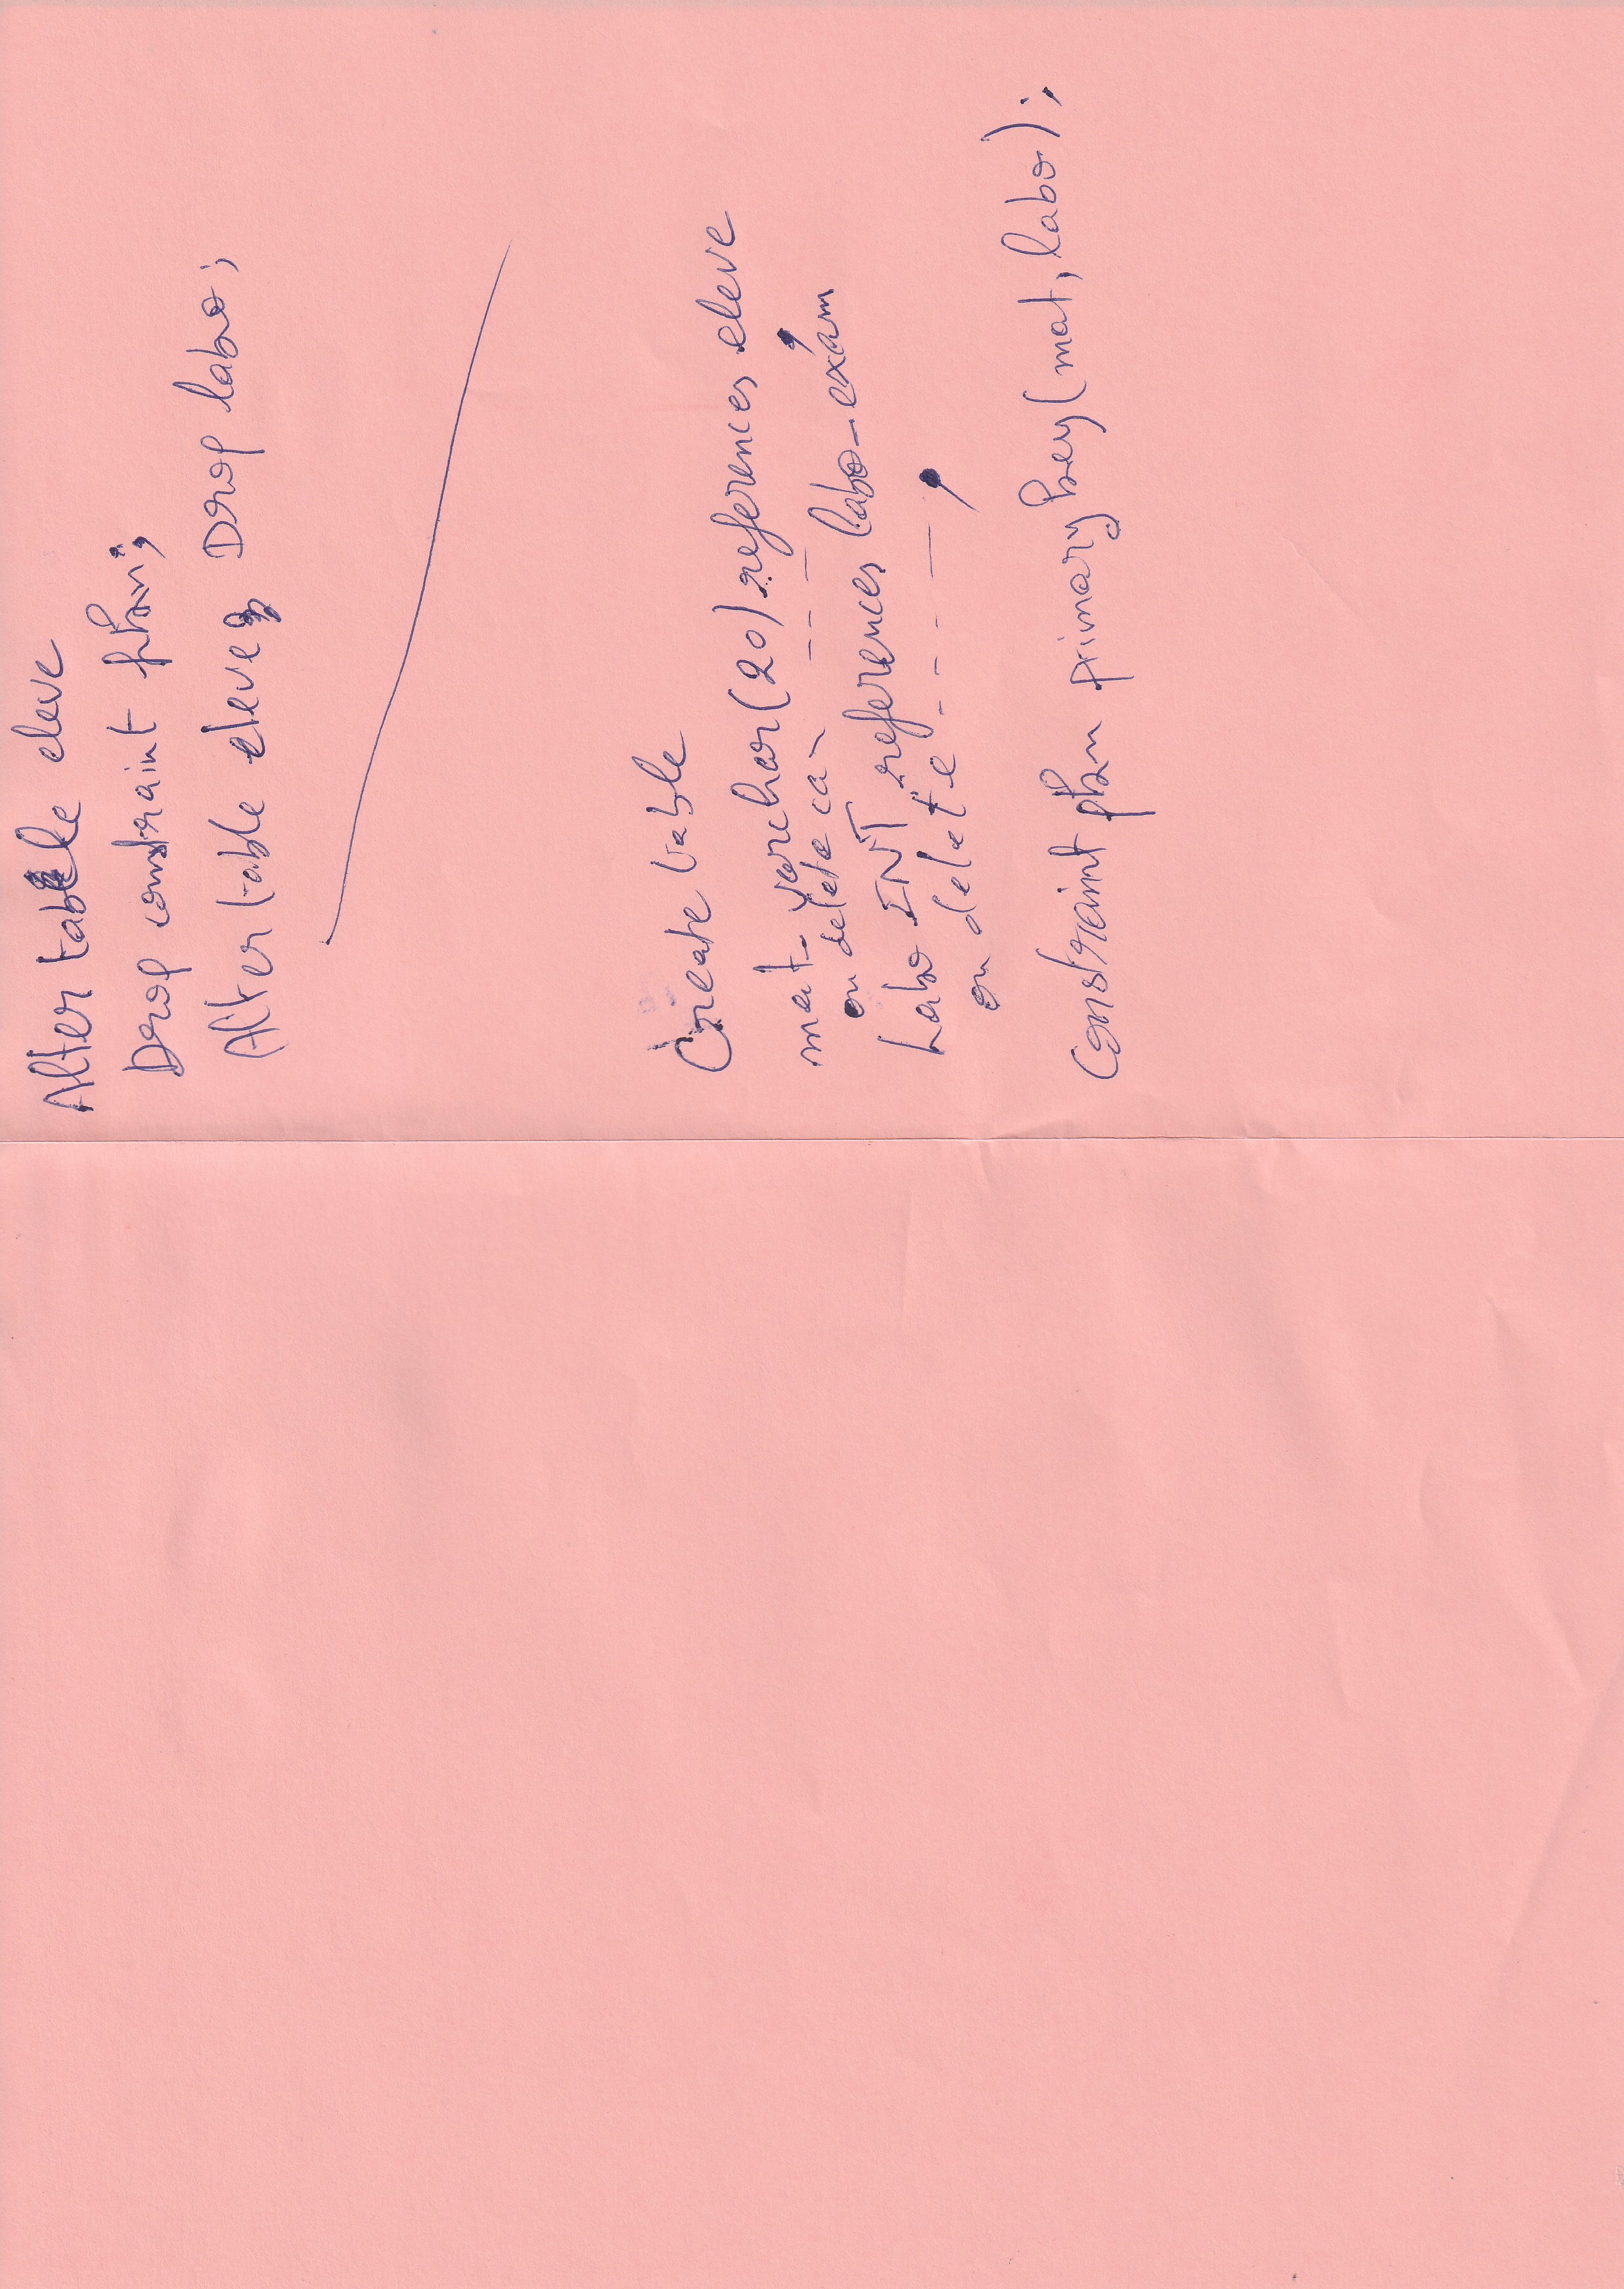 Alter table eleve
Drop constraint pkn;
Alter table eleve Drop labo;
Create table
mat varchar(20) references eleve
on delete ca - - - ,
Labo INT references labo_exam
on delete - - - - - ,
Constraint pkn primary key (mat, labo);